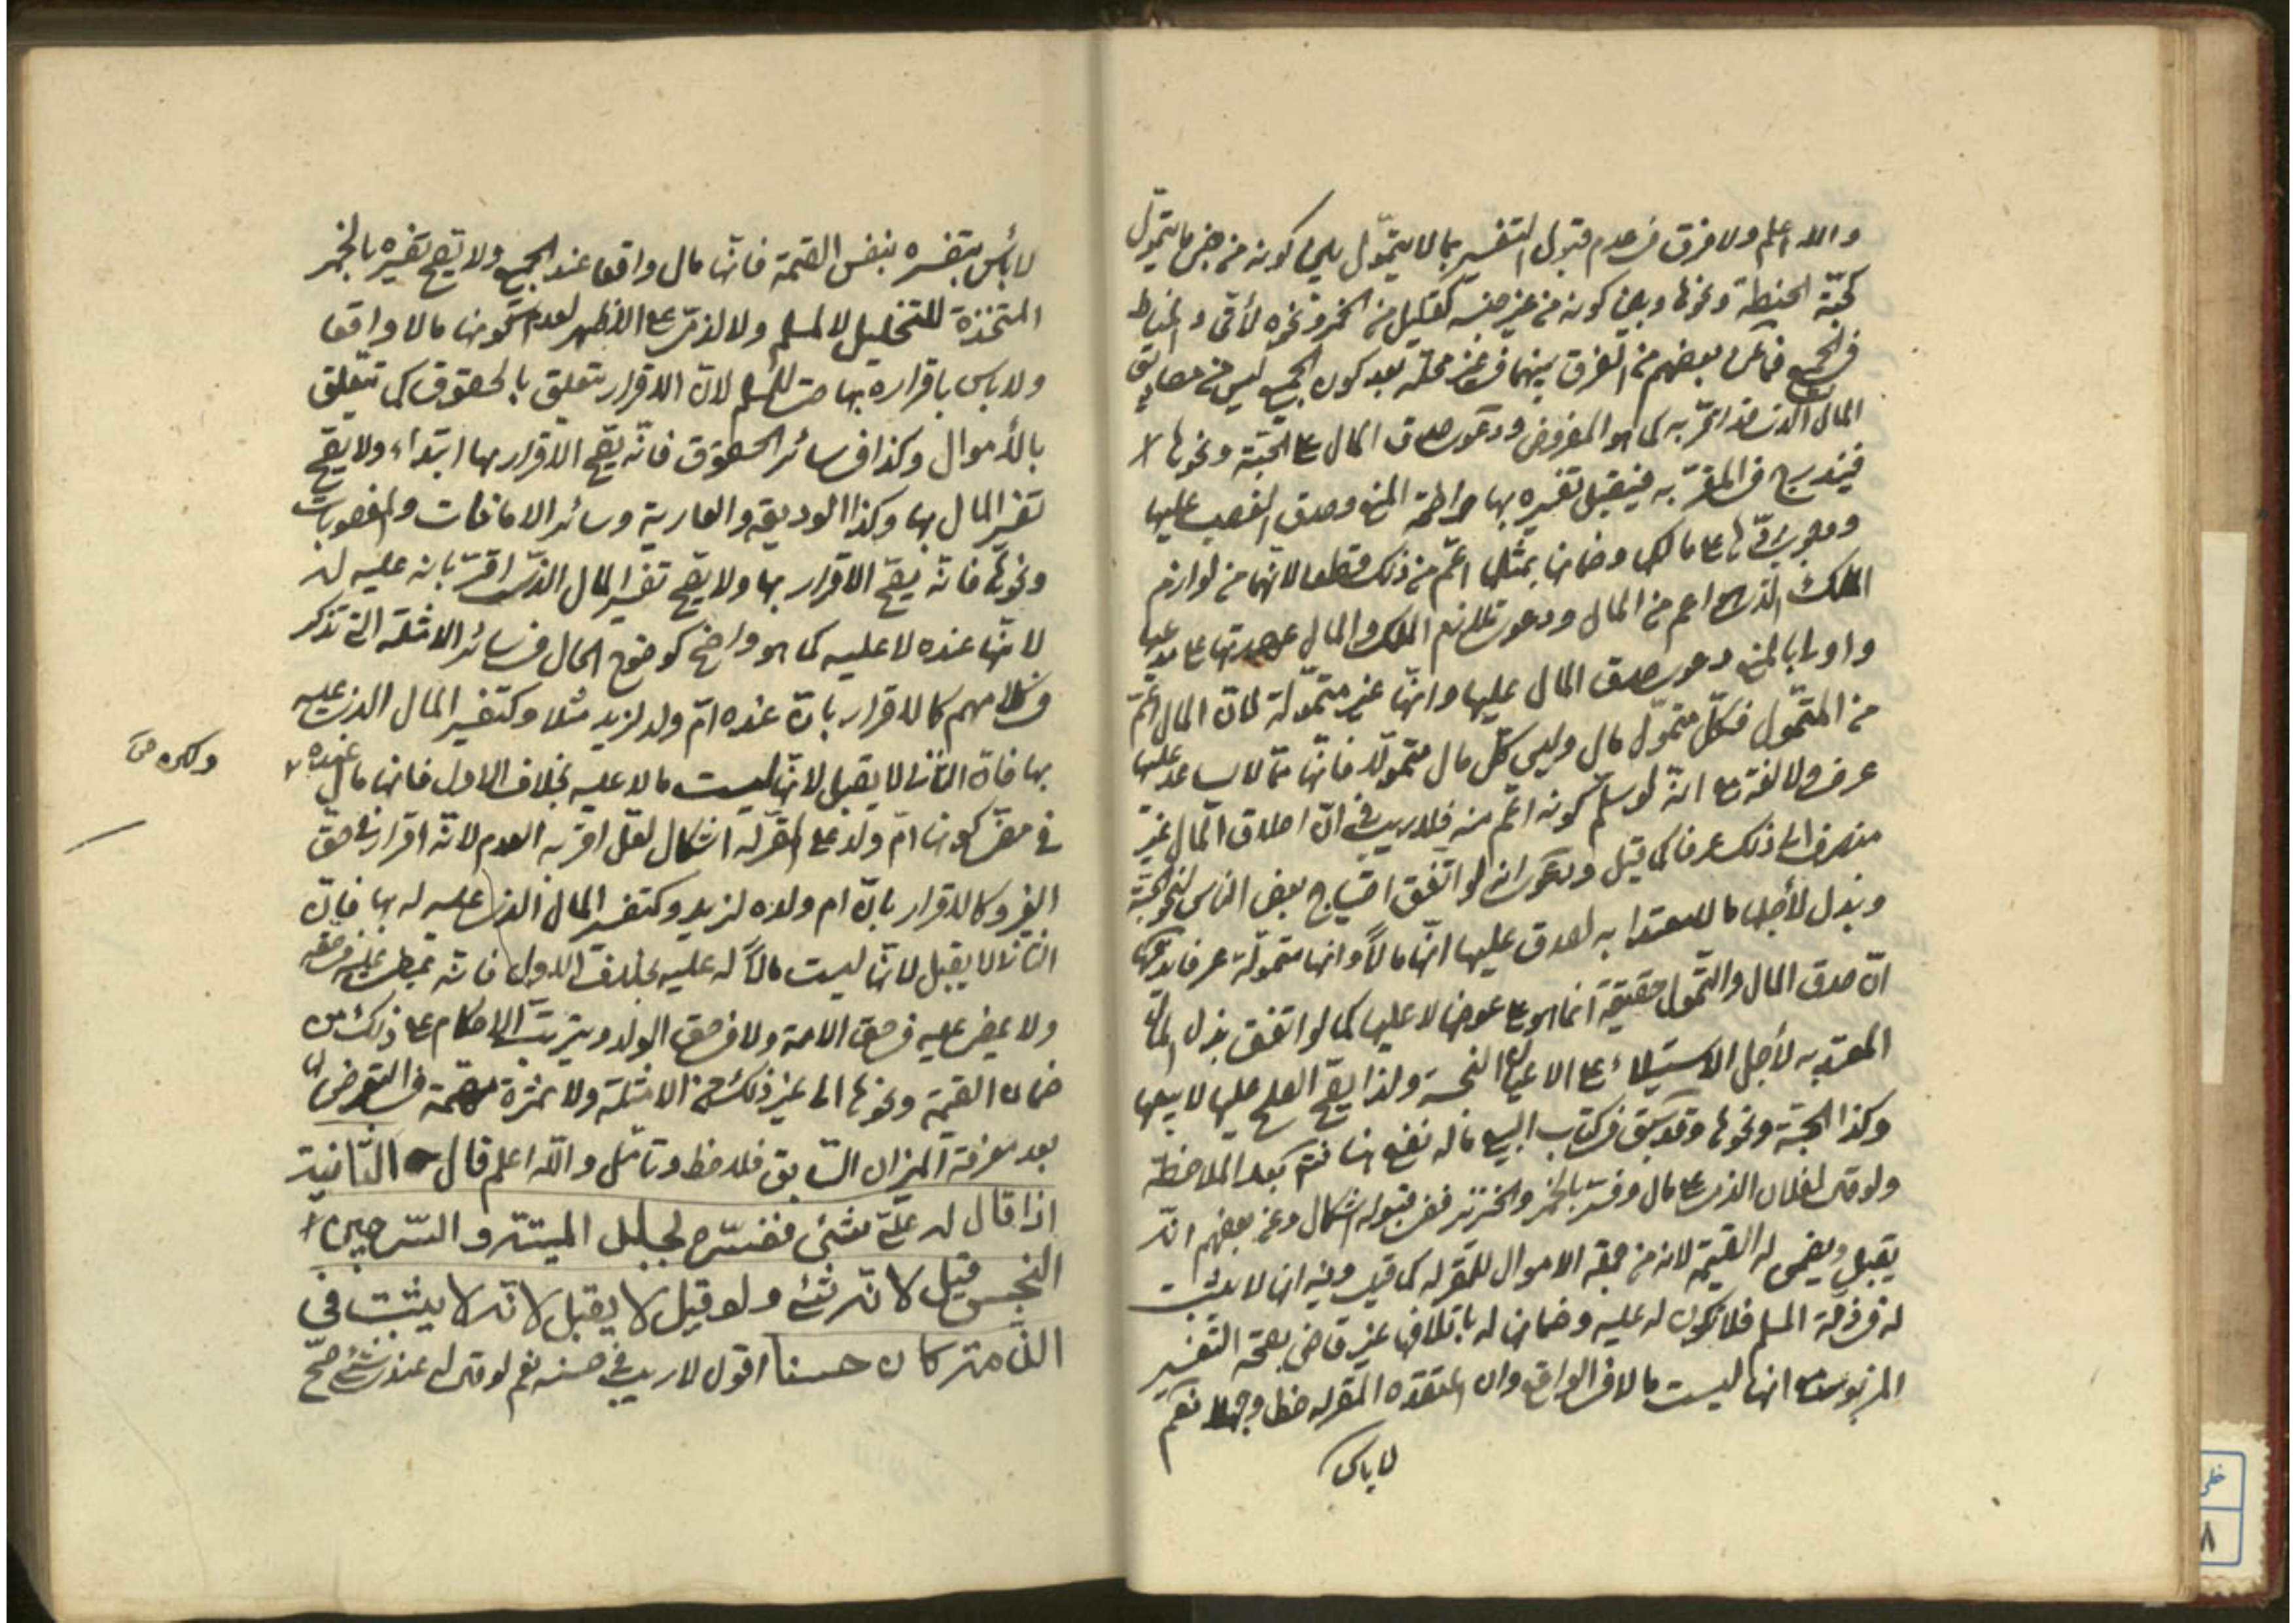 والله اعلم ولا فرق في عدم قبول التفسير بما لا يتموّل بين كونه من جنس ما يتموّل
كحبّة الحنطة ونحوها وبين كونه من غير جنسه كقليل من الخمر ونحوه لأتّحاد المناط
في الجميع فما عن بعضهم من الفرق بينهما في غير محلّه بعد كون الجميع ليس من مصاديق
المال الذي قد اقرّ به كما هو المفروض ودعوى صدق المال على الحبّة ونحوها
فيندرج في المقرّ به فيقبل تفسيره بها واضحة المنع وصدق الغصب عليها
ووجوب ردّها على مالكها وضمانها بمثلها اعمّ من ذلك قطعا لانّها من لوازم
الملك الذي هو اعم من المال ودعوى تلازم الملك والمال عهدتها على مدعيها
واولى بالمنع دعوى صدق المال عليها وانّها غير متموّلة لانّ المال اعمّ
من المتموّل فكلّ متموّل مال وليس كلّ مال متموّلا فانّها ممّا لا يساعد عليها
عرف ولا لغة مع انّه لو سلّم كونه اعم منه فلا ريب في انّ اطلاق المال غير
منصرف الى ذلك عرفا كما قيل ودعوى انه لو اتّفق احتياج بعض الناس لنحو الحبّة
وبذل لأجلها ما لا يعتدا به لصدق عليها انّها مالاً وانها متموّلة عرفا يدفعها
انّ صدق المال والتّمول حقيقة انما هو على عوضها لا عليها كما لو اتّفق بذل المال
المعتد به لأجل الاستيلاء على الاعيان النجسة ولذا يصح الصلح عليها لا بيعها
وكذا الحبّة ونحوها وقد سبق في كتاب البيع ما له نفع هنا فتمّ بعد الملاحظة
ولو قال لفلان الذمي على مال وفسّر بالخمر والخنزير ففي قبوله اشكال وعن بعضهم انّه
يقبل ويضمن له القيمة لانه من جملة الاموال للمقرّ له كما قيل وفيه انها لا يثبت
له في ذمّة المسلم فلا تكون له عليه وضمانها له باتلافها غير قاض بصحّة التفسير
المزبور مع انها ليست مالا في الواقع وان اعتقده المقرّ له خطا وجهلا نعم
لا باس
لا بأس بتفسيره بنفس القيمة فانّها مال واقعا عند الجميع ولا يصح تفسيره بالخمر
المتخذة للتخليل لا لمسلم ولا لذمّي على الاظهر لعدم كونها مالا واقعا
ولا باس باقراره بها حتى للمسلم لانّ الاقرار يتعلق بالحقوق كما تتعلّق
بالأموال وكذا في سائر الحقوق فانّه يصحّ الاقرار بها ابتداء ولا يصحّ
تفسير المال بها وكذا الوديعة والعارية وسائر الامانات والمغصوبات
ونحوها فانّه يصحّ الاقرار بها ولا يصح تفسير المال الذي اقرّ بانه عليه له
لانّها عنده لا عليه كما هو واضح كوضوح الحال في سائر الامثلة التي تذكر
في كلامهم كالاقرار بانّ عنده امّ ولد لزيد مثلا وكتفسير المال الذي عليه
بها فانّ الثاني لا يقبل لانّها ليست مالا عليه بخلاف الاول فانها مال عنده
وفي مقر كونها امّ ولد على المقرّ له اشكال لعلّ اقربه العدم لانّه اقرار في حق
الغير وكالاقرار بانّ ام ولده لزيد وكتفسير المال الذي عليه له بها فانّ
الثاني لا يقبل لانّها ليست مالاً له عليه بخلاف الاول فانّه يمضي عليه في حقه
ولا يمضي عليه في حق الامة ولا في حق الولد ويترتب الاحكام على ذلك من
ضمان القيمة ونحوها الى غير ذلك من الامثلة ولا ثمرة مهمّة في التعرض لها
بعد معرفة الميزان السّابق فلاحظ وتامّل والله اعلم قال الثّانية
اذا قال له عليّ شئ ففسّره بجلد الميتة والسّرجين
النجس قيل لانّه شئ ولو قيل لا يقبل لانّه لا يثبت في
الذّمة كان حسنا اقول لا ريب في حسنه نعم لو قال له عندي شئ صحّ